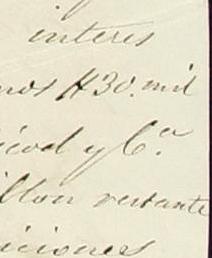 interes
nos #30. mil
icod y Cª.
illon restante
iciones